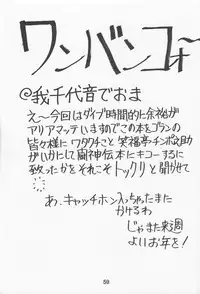 ワンバンコォ〜
@我千代音でおま
えー今回はダイブ時間的に余裕が
アリアマッテいますのでこの本をゴランの
皆々様にワタクチこと笑福亭チンポ之助
がいかにして闘神伝本にキコーするに
致ったかをそれこそトックリと聞かせて
あ、キャッチホン入っちゃたまた
かけるわ
じゃまた来週
よいお年を!
59